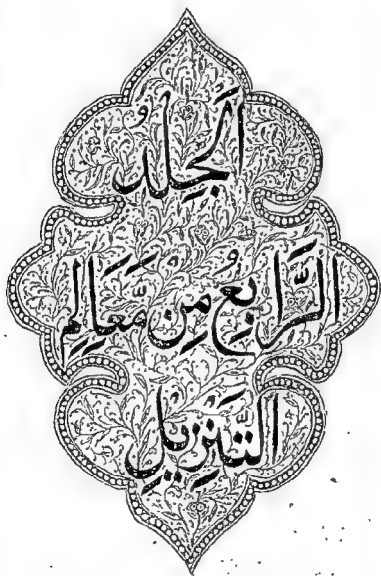 الجِلدُ
الرَّابِعُ مِن مَّعَالِمِ
التَّنزِيلِ